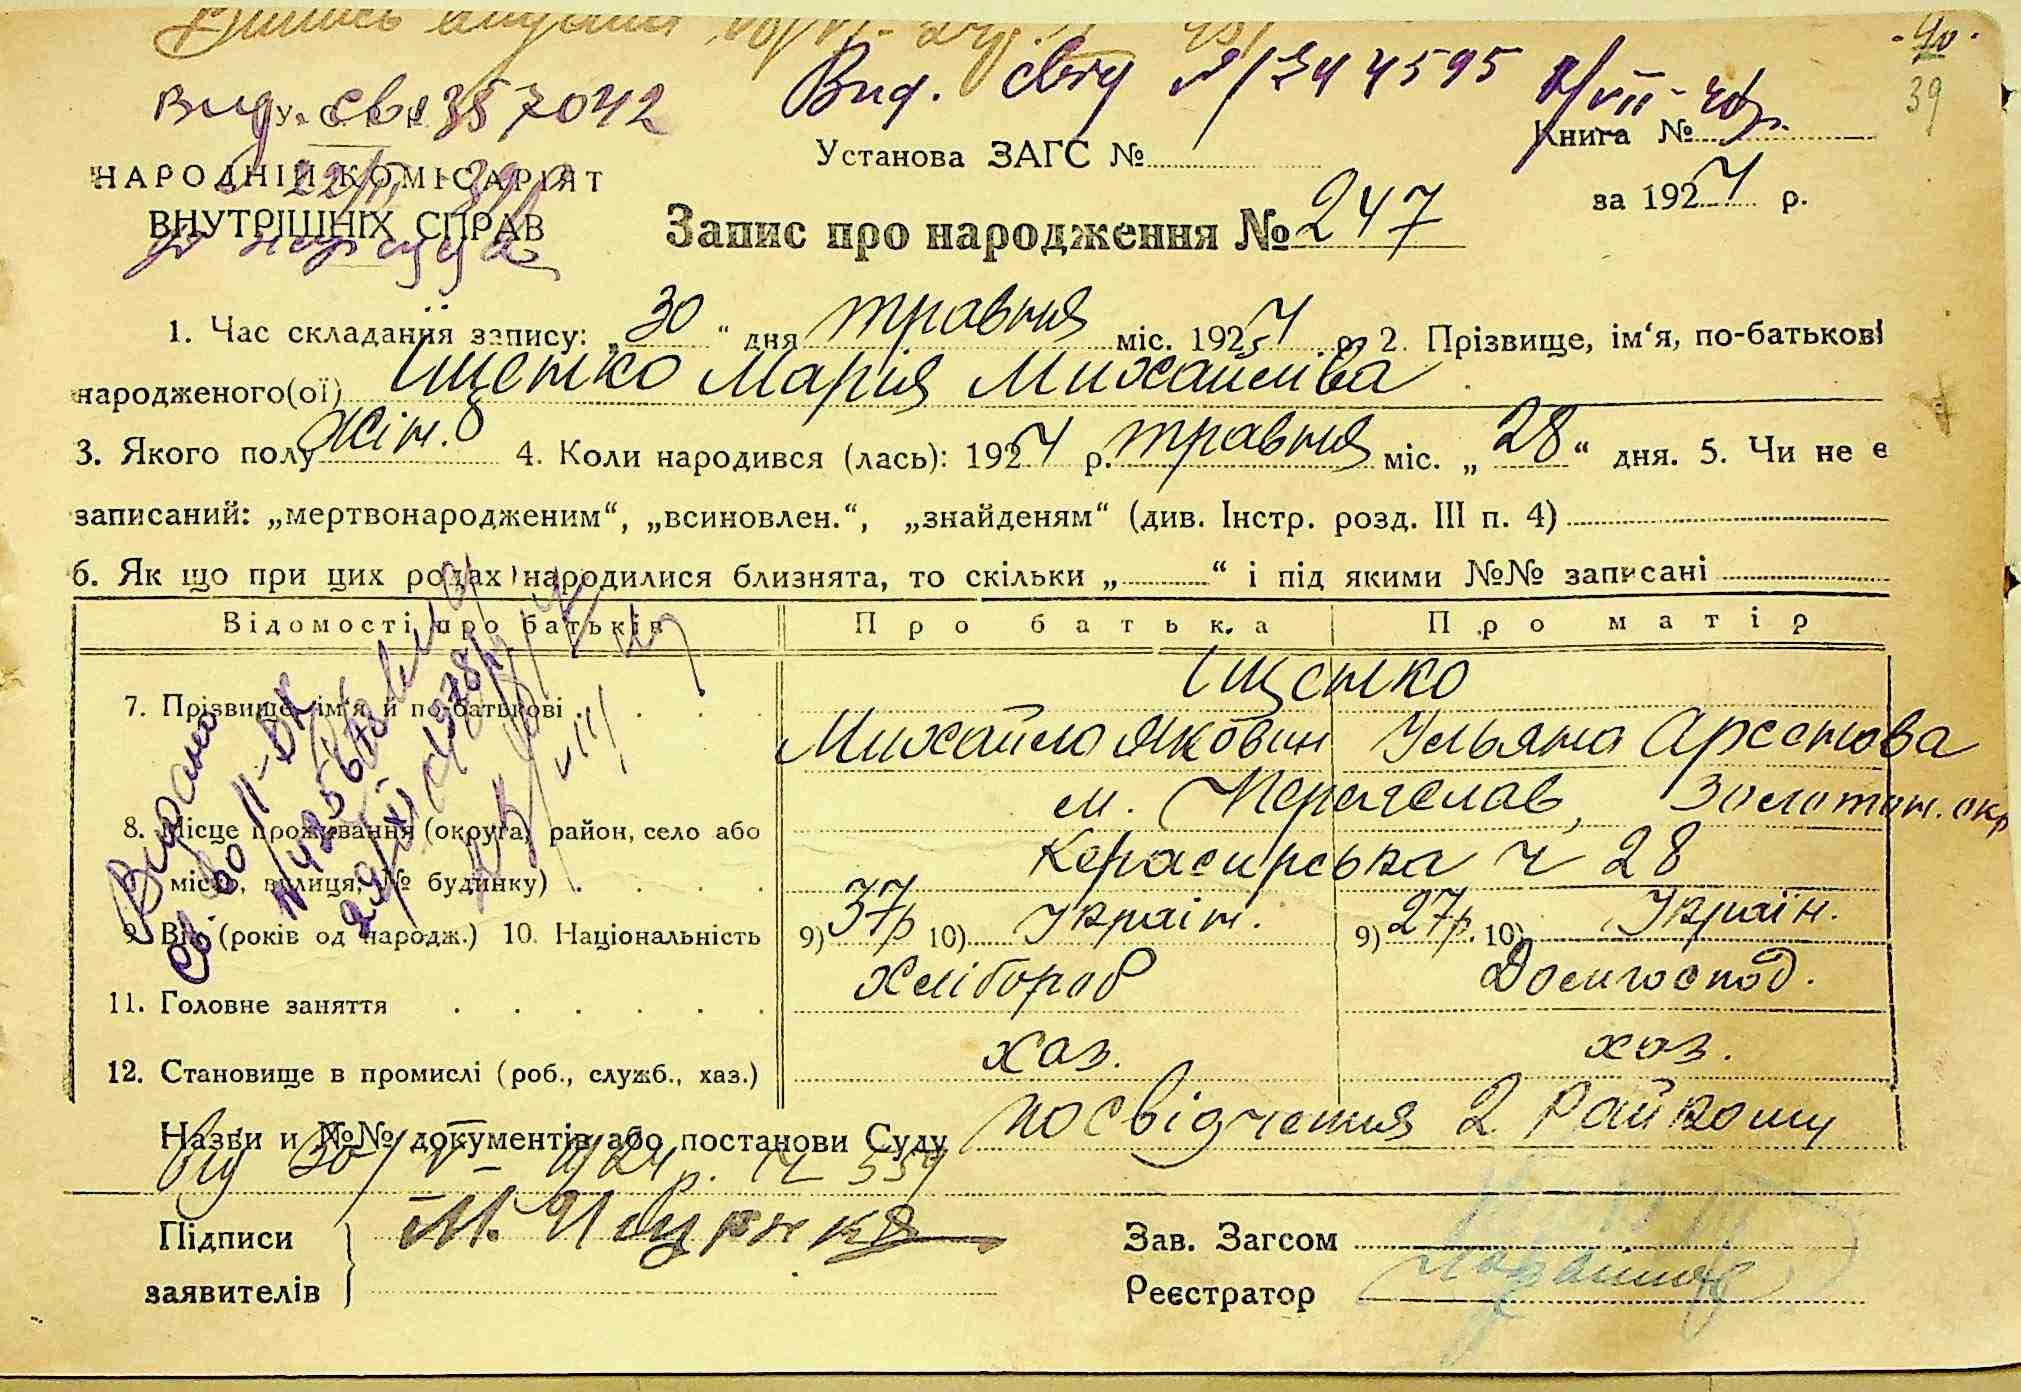 Вид. свід № 1344595 1/VII-40р.
-40-
39
Вид. свв 357042
У. С. Р. Р.
Установа ЗАГС №
Книга №
НАРОДНІЙ КОМІСАРІЯТ
ВНУТРІШНІХ СПРАВ
за 1924 р.
Запис про народження № 247
1. Час складання запису: „30“ дня травня міс. 1924 р. 2. Прізвище, ім‘я, по-батькові
народженого(ої) Іщенко Марія Михайліва
3. Якого полу жін. 4. Коли народився (лась): 1924 р. травня міс. „28“ дня. 5. Чи не є
записаний: „мертвонародженим“, „всиновлен.“, „знайденям“ (див. Інстр. розд. III п. 4)
6. Як що при цих родах народилися близнята, то скільки „ “ і під якими №№ записані
Відомості про батьків Про батька Про матір
Іщенко
7. Прізвище, ім‘я й по-батькові Михайло Яковин Ульяна Арсенова
м. Переяслав, Золотон. окр
8. Місце проживання (округа, район, село або
місто, вулиця, № будинку) ч 28
9. Вік (років од народж.) 10. Національність 9) 37р 10) Україн. 9) 27р. 10) Україн.
11. Головне заняття Хлібороб Домгоспод.
12. Становище в промислі (роб., служб., хаз.) хаз. хаз.
Видано
Назви и №№ документів або постанови Суду посвідчення 2 Райкому
від 30/V-1924р. № 559
Підписи
заявителів
М. Іщенко
Зав. Загсом
Реєстратор